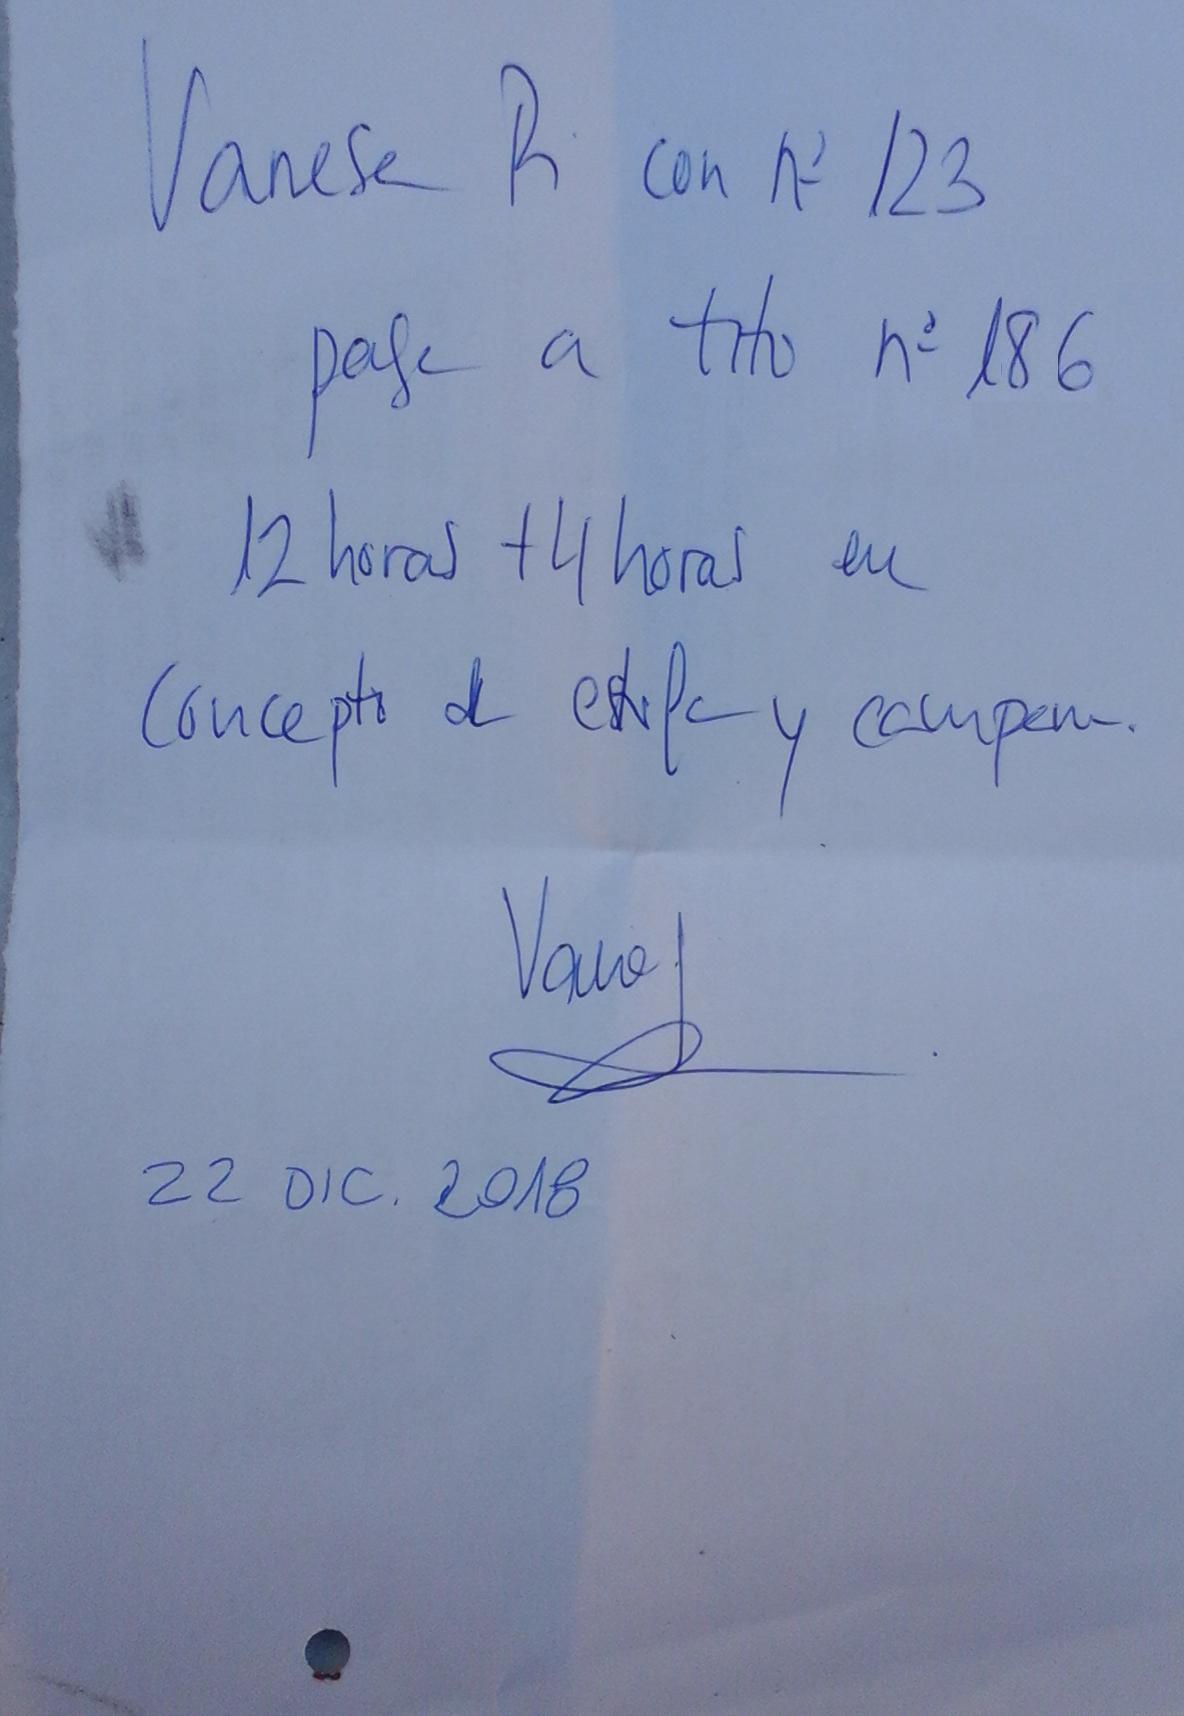 Vanesa R. con nº 123
paga a tito nº 186
12 horas + 4 horas en
concepto de estufa y campana.
Vane
22 DIC. 2018